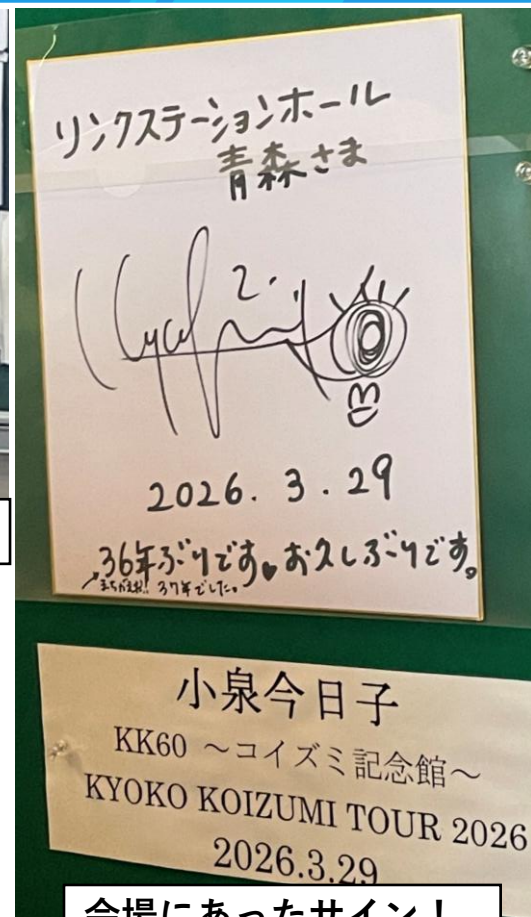 リンクステーションホール
青森さま
2026.3.29
36年ぶりです♥お久しぶりです。
まちがえた!! 37年でした。
小泉今日子
KK60 ~コイズミ記念館~
KYOKO KOIZUMI TOUR 2026
2026.3.29
会場にあったサイン!